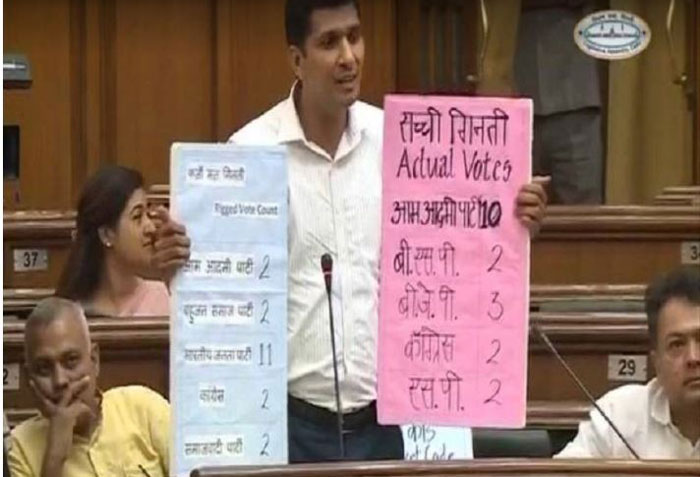 फर्जी मत गिनती
Rigged Vote Count
आम आदमी पार्टी 2
बहुजन समाज पार्टी 2
भारतीय जनता पार्टी 11
कांग्रेस 2
समाजवादी पार्टी 2
सच्ची गिनती
Actual Votes
आम आदमी पार्टी 10
बी.एस.पी. 2
बी.जे.पी. 3
काँग्रेस 2
एस.पी. 2
Code
37
29